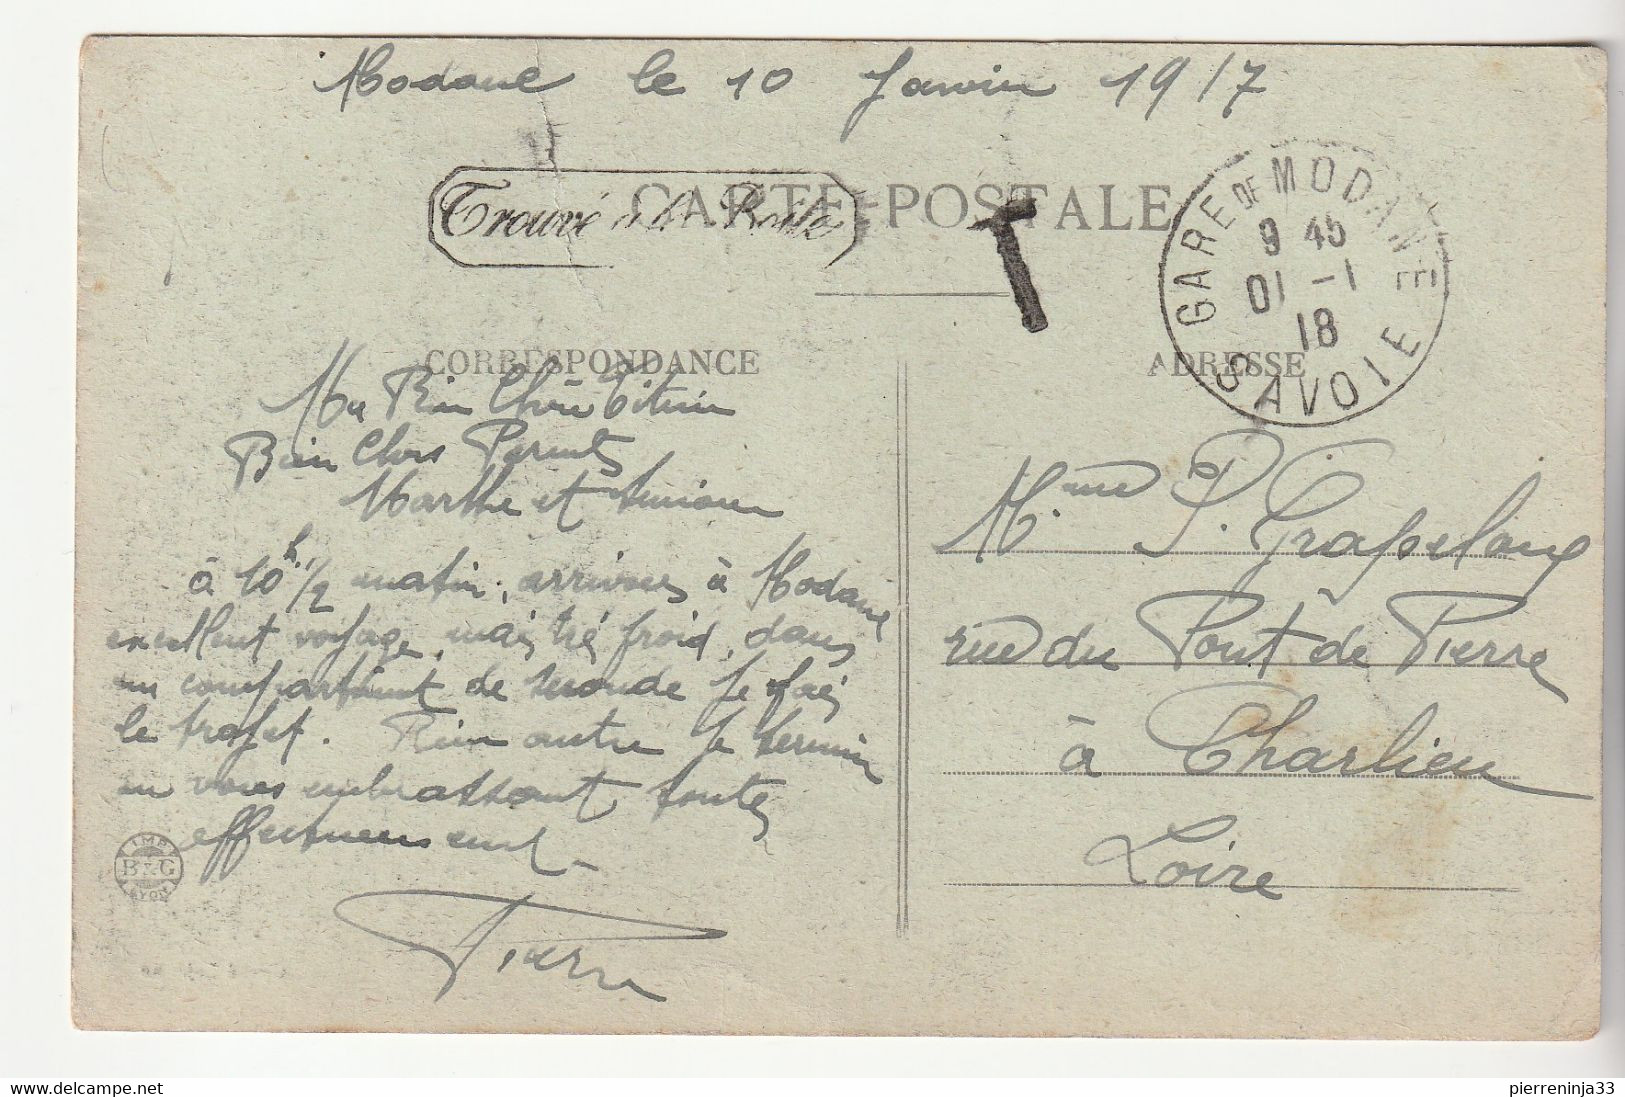 Modane le 10 Janvier 1917
Trouvé à la Boîte
CARTE POSTALE
T
GARE DE MODANE
9 45
01 -1
18
SAVOIE
CORRESPONDANCE
ADRESSE
Ma Bien Chère Titine
Bien Chers Parents
Marthe et
à 10h 1/2 matin, arrivons à Modane
excellent voyage, mais tré froid, dans
un compartiment de seconde Je fais
le trajet. Rien autre Je termine
en vous embrassant toutes
affectueusement
Pierre
IMP.
B & G
LYON
Mme P. Grapeloup
rue du Pont de Pierre
à Charlieu
Loire
pierreninja33